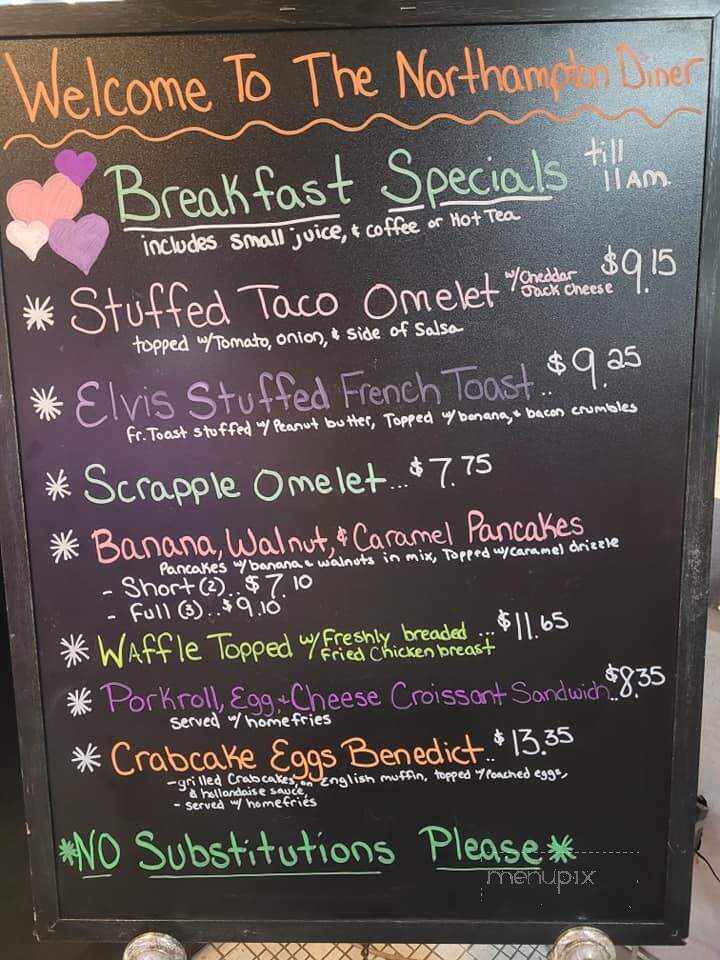 Welcome To The Northampton Diner
Breakfast Specials till 11 AM.
includes small juice, & coffee or Hot Tea
* Stuffed Taco Omelet w/Cheddar Jack Cheese $9.15
topped w/Tomato, onion, & side of Salsa
* Elvis Stuffed French Toast.. $9.25
Fr. Toast stuffed w/ Peanut butter, Topped w/banana, & bacon crumbles
* Scrapple Omelet...$7.75
* Banana, Walnut, & Caramel Pancakes
Pancakes w/banana & walnuts in mix, Topped w/caramel drizzle
- Short (2)..$7.10
- Full (3)..$9.10
* Waffle Topped w/Freshly breaded Fried Chicken breast ...$11.65
* Porkroll, Egg, & Cheese Croissant Sandwich..$8.35
served w/ homefries
* Crabcake Eggs Benedict..$13.35
- grilled Crabcakes, on English muffin, topped w/Poached eggs,
& hollandaise sauce
- served w/ homefries
*NO Substitutions Please*
menupix